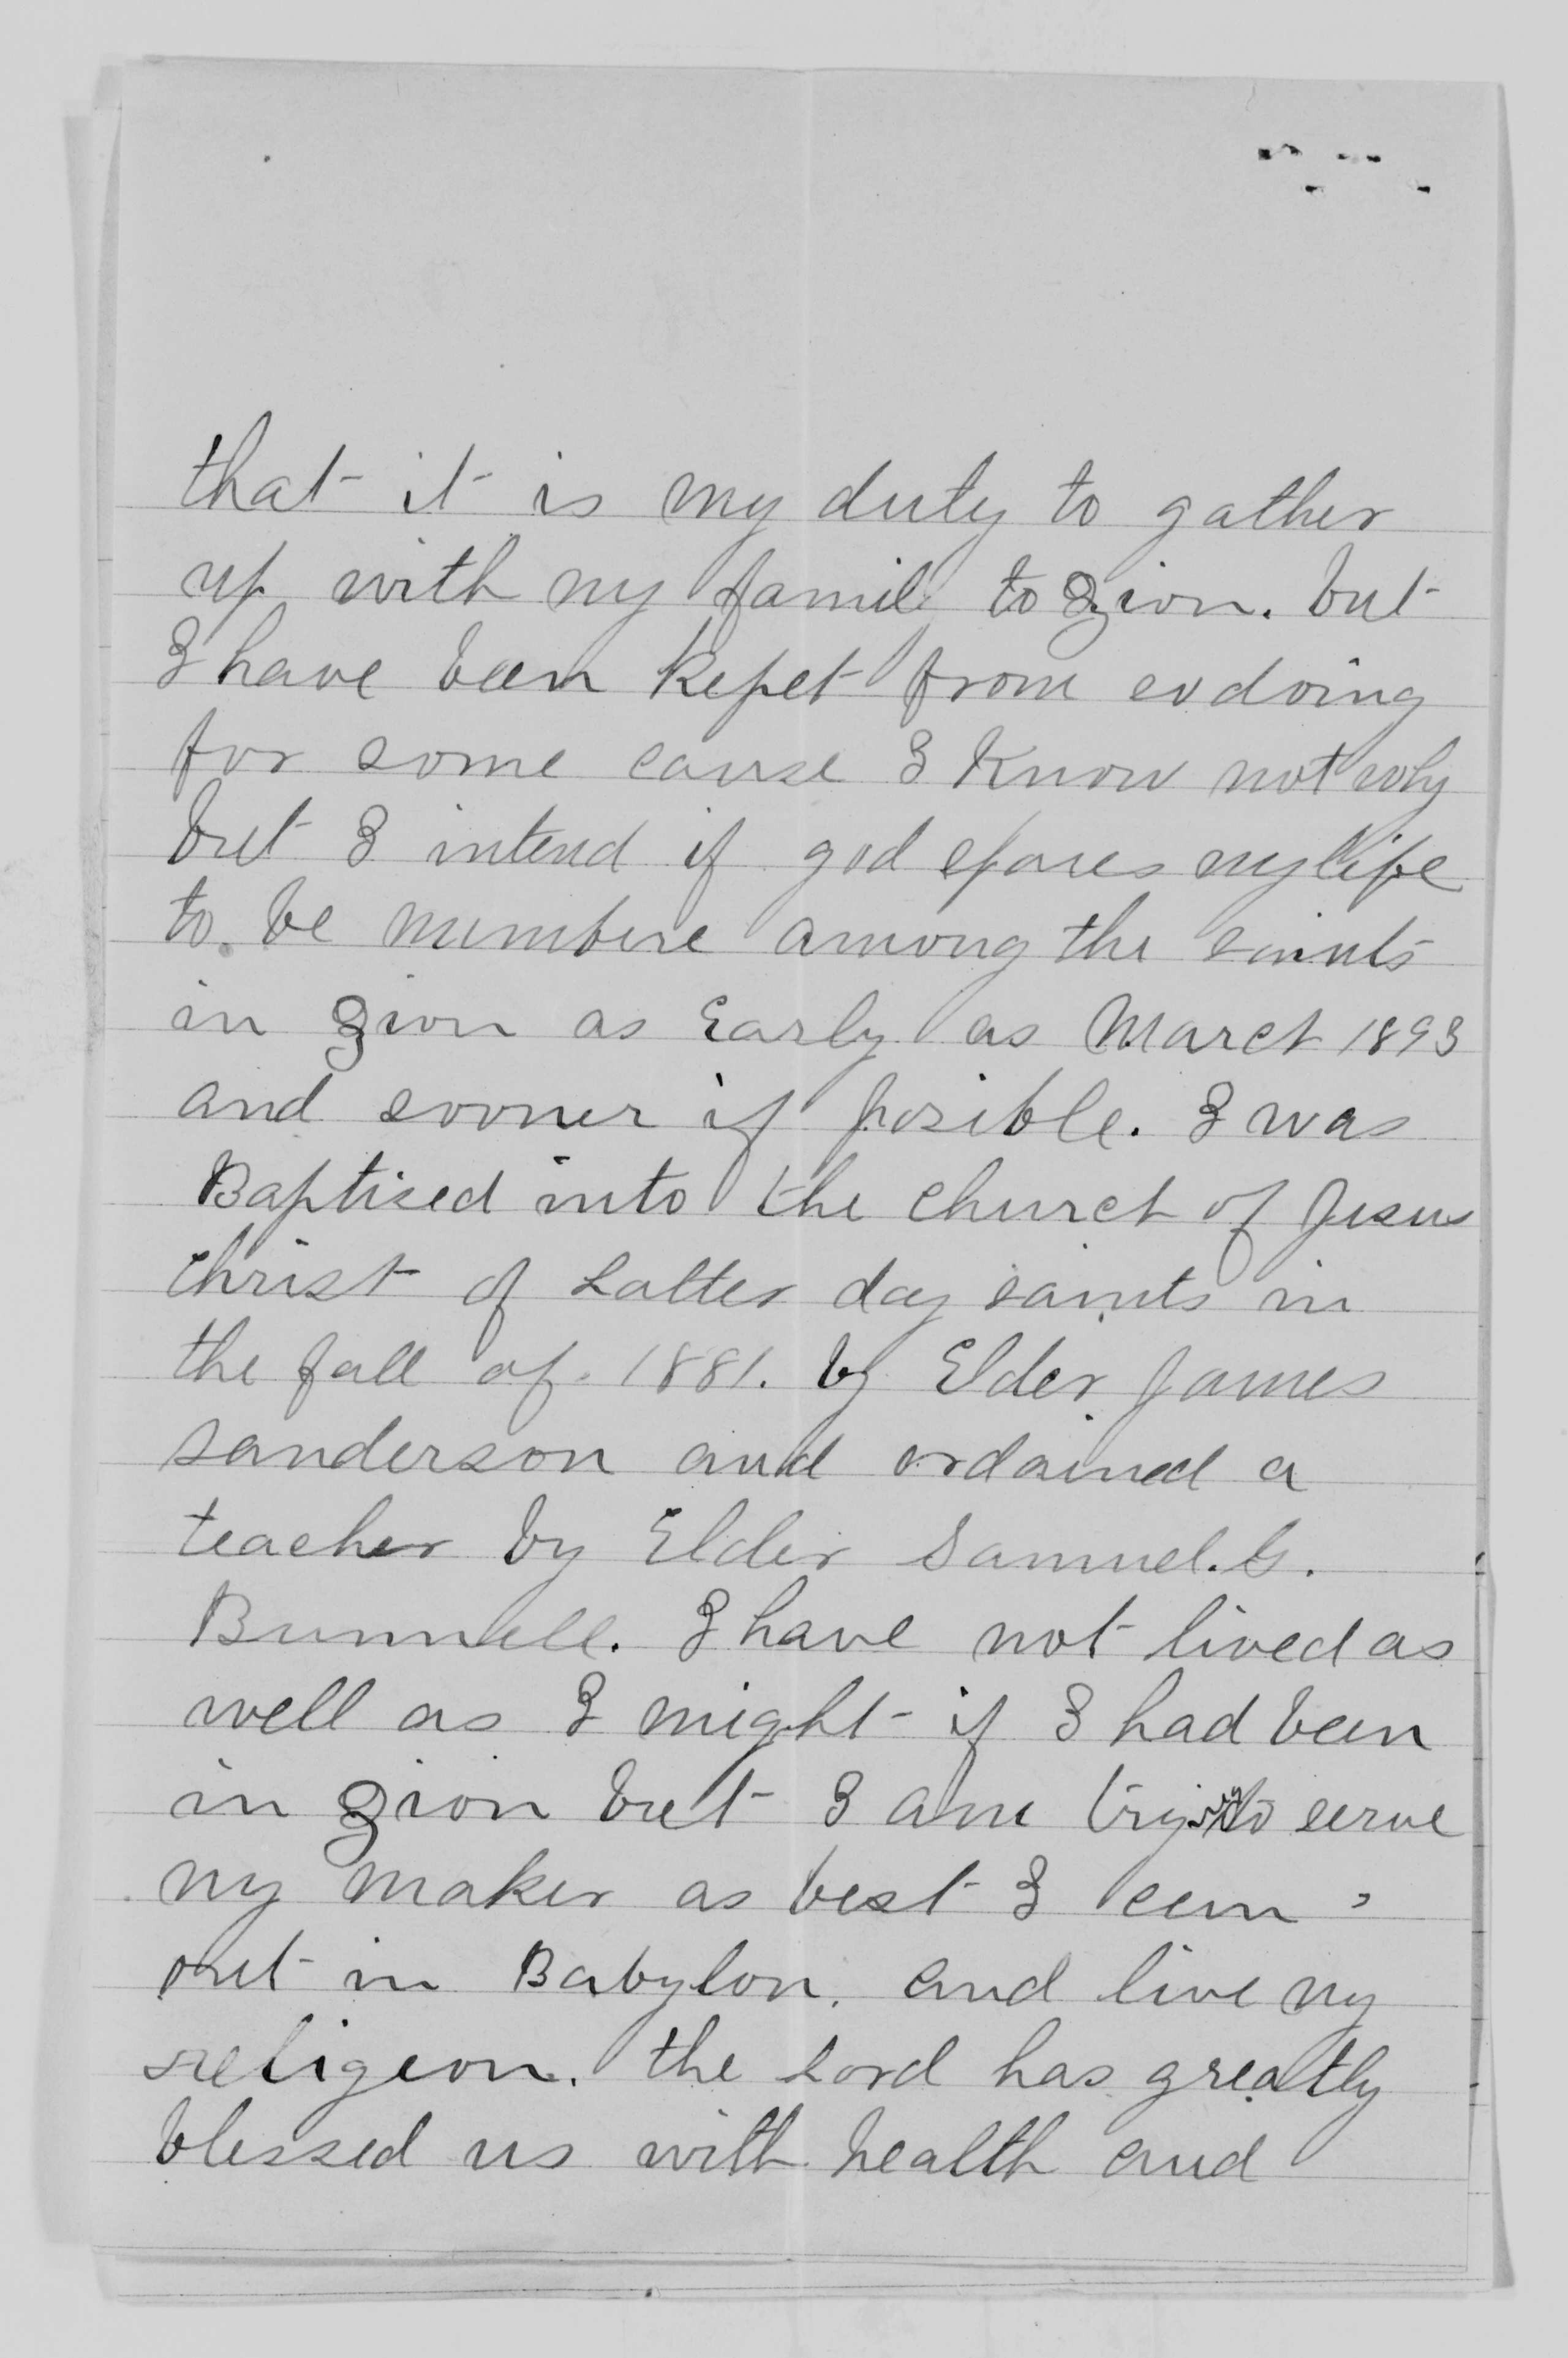 that it is my duty to gather
up with my famil to Zion. but
I have been kepet from so doing
for some cause I know not why
but I intend if god spares my life
to be numbere among the saints
in Zion as Early as March 1893
and sooner if posible. I was
Baptised into the church of Jesus
Christ of Latter day saints in
the fall of. 1881. by Elder James
Sanderson and ordained a
teacher by Elder Samuel. G.
Bunnell. I have not lived as
well as I might if I had been
in Zion but I am trying to serve
my maker as best I can
out in Babylon. and live my
religeon. the Lord has greatly
blessed us with health and